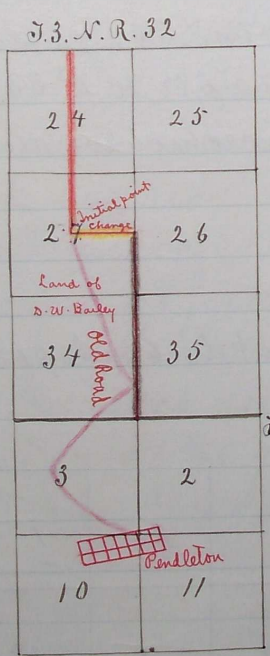 T. 3. N. R. 32
24 25
Initial point
change
27 26
Land of
D. W. Bailey
Old Road
34 35
3 2
Pendleton
10 11